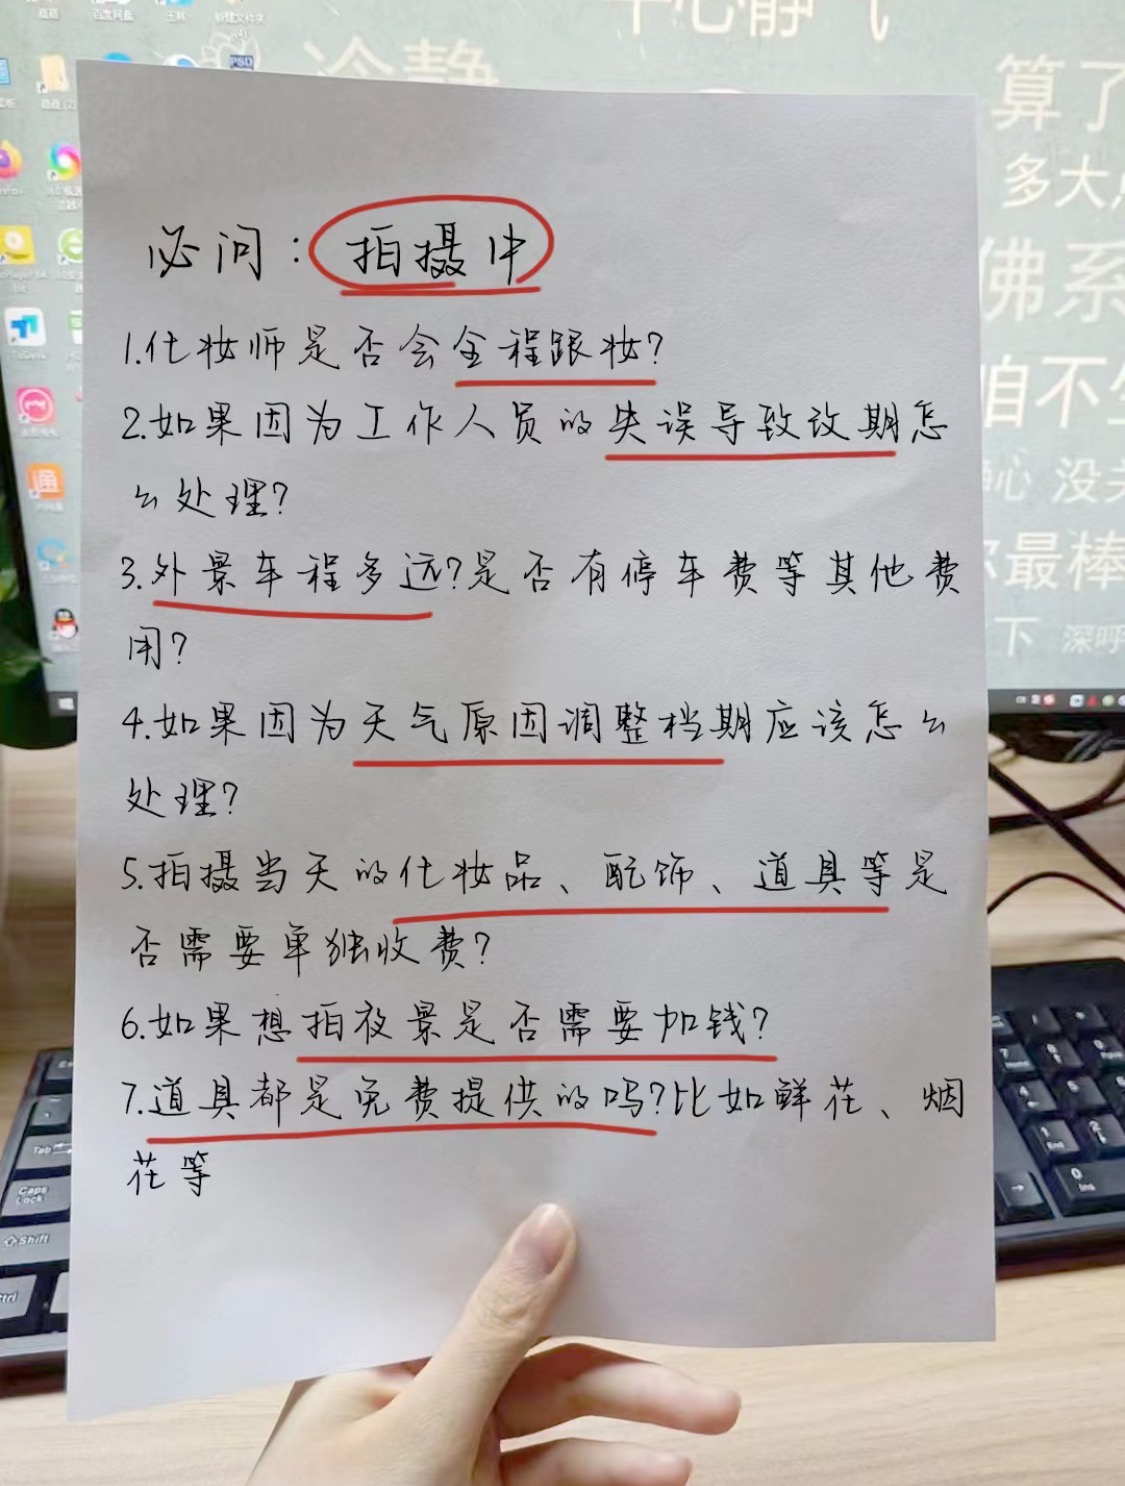 平心静气
冷静
算了
多大点
佛系
咱不生
静心 没关
你最棒
下 深呼
PSD
ToDesk
通
必问：拍摄中
1.化妆师是否会全程跟妆?
2.如果因为工作人员的失误导致改期怎
么处理?
3.外景车程多远?是否有停车费等其他费
用?
4.如果因为天气原因调整档期应该怎么
处理?
5.拍摄当天的化妆品、配饰、道具等是
否需要单独收费?
6.如果想拍夜景是否需要加钱?
7.道具都是免费提供的吗?比如鲜花、烟
花等
Tab
Caps
Lock
Shift
Ctrl
7
Home
1
End
2
0
Ins